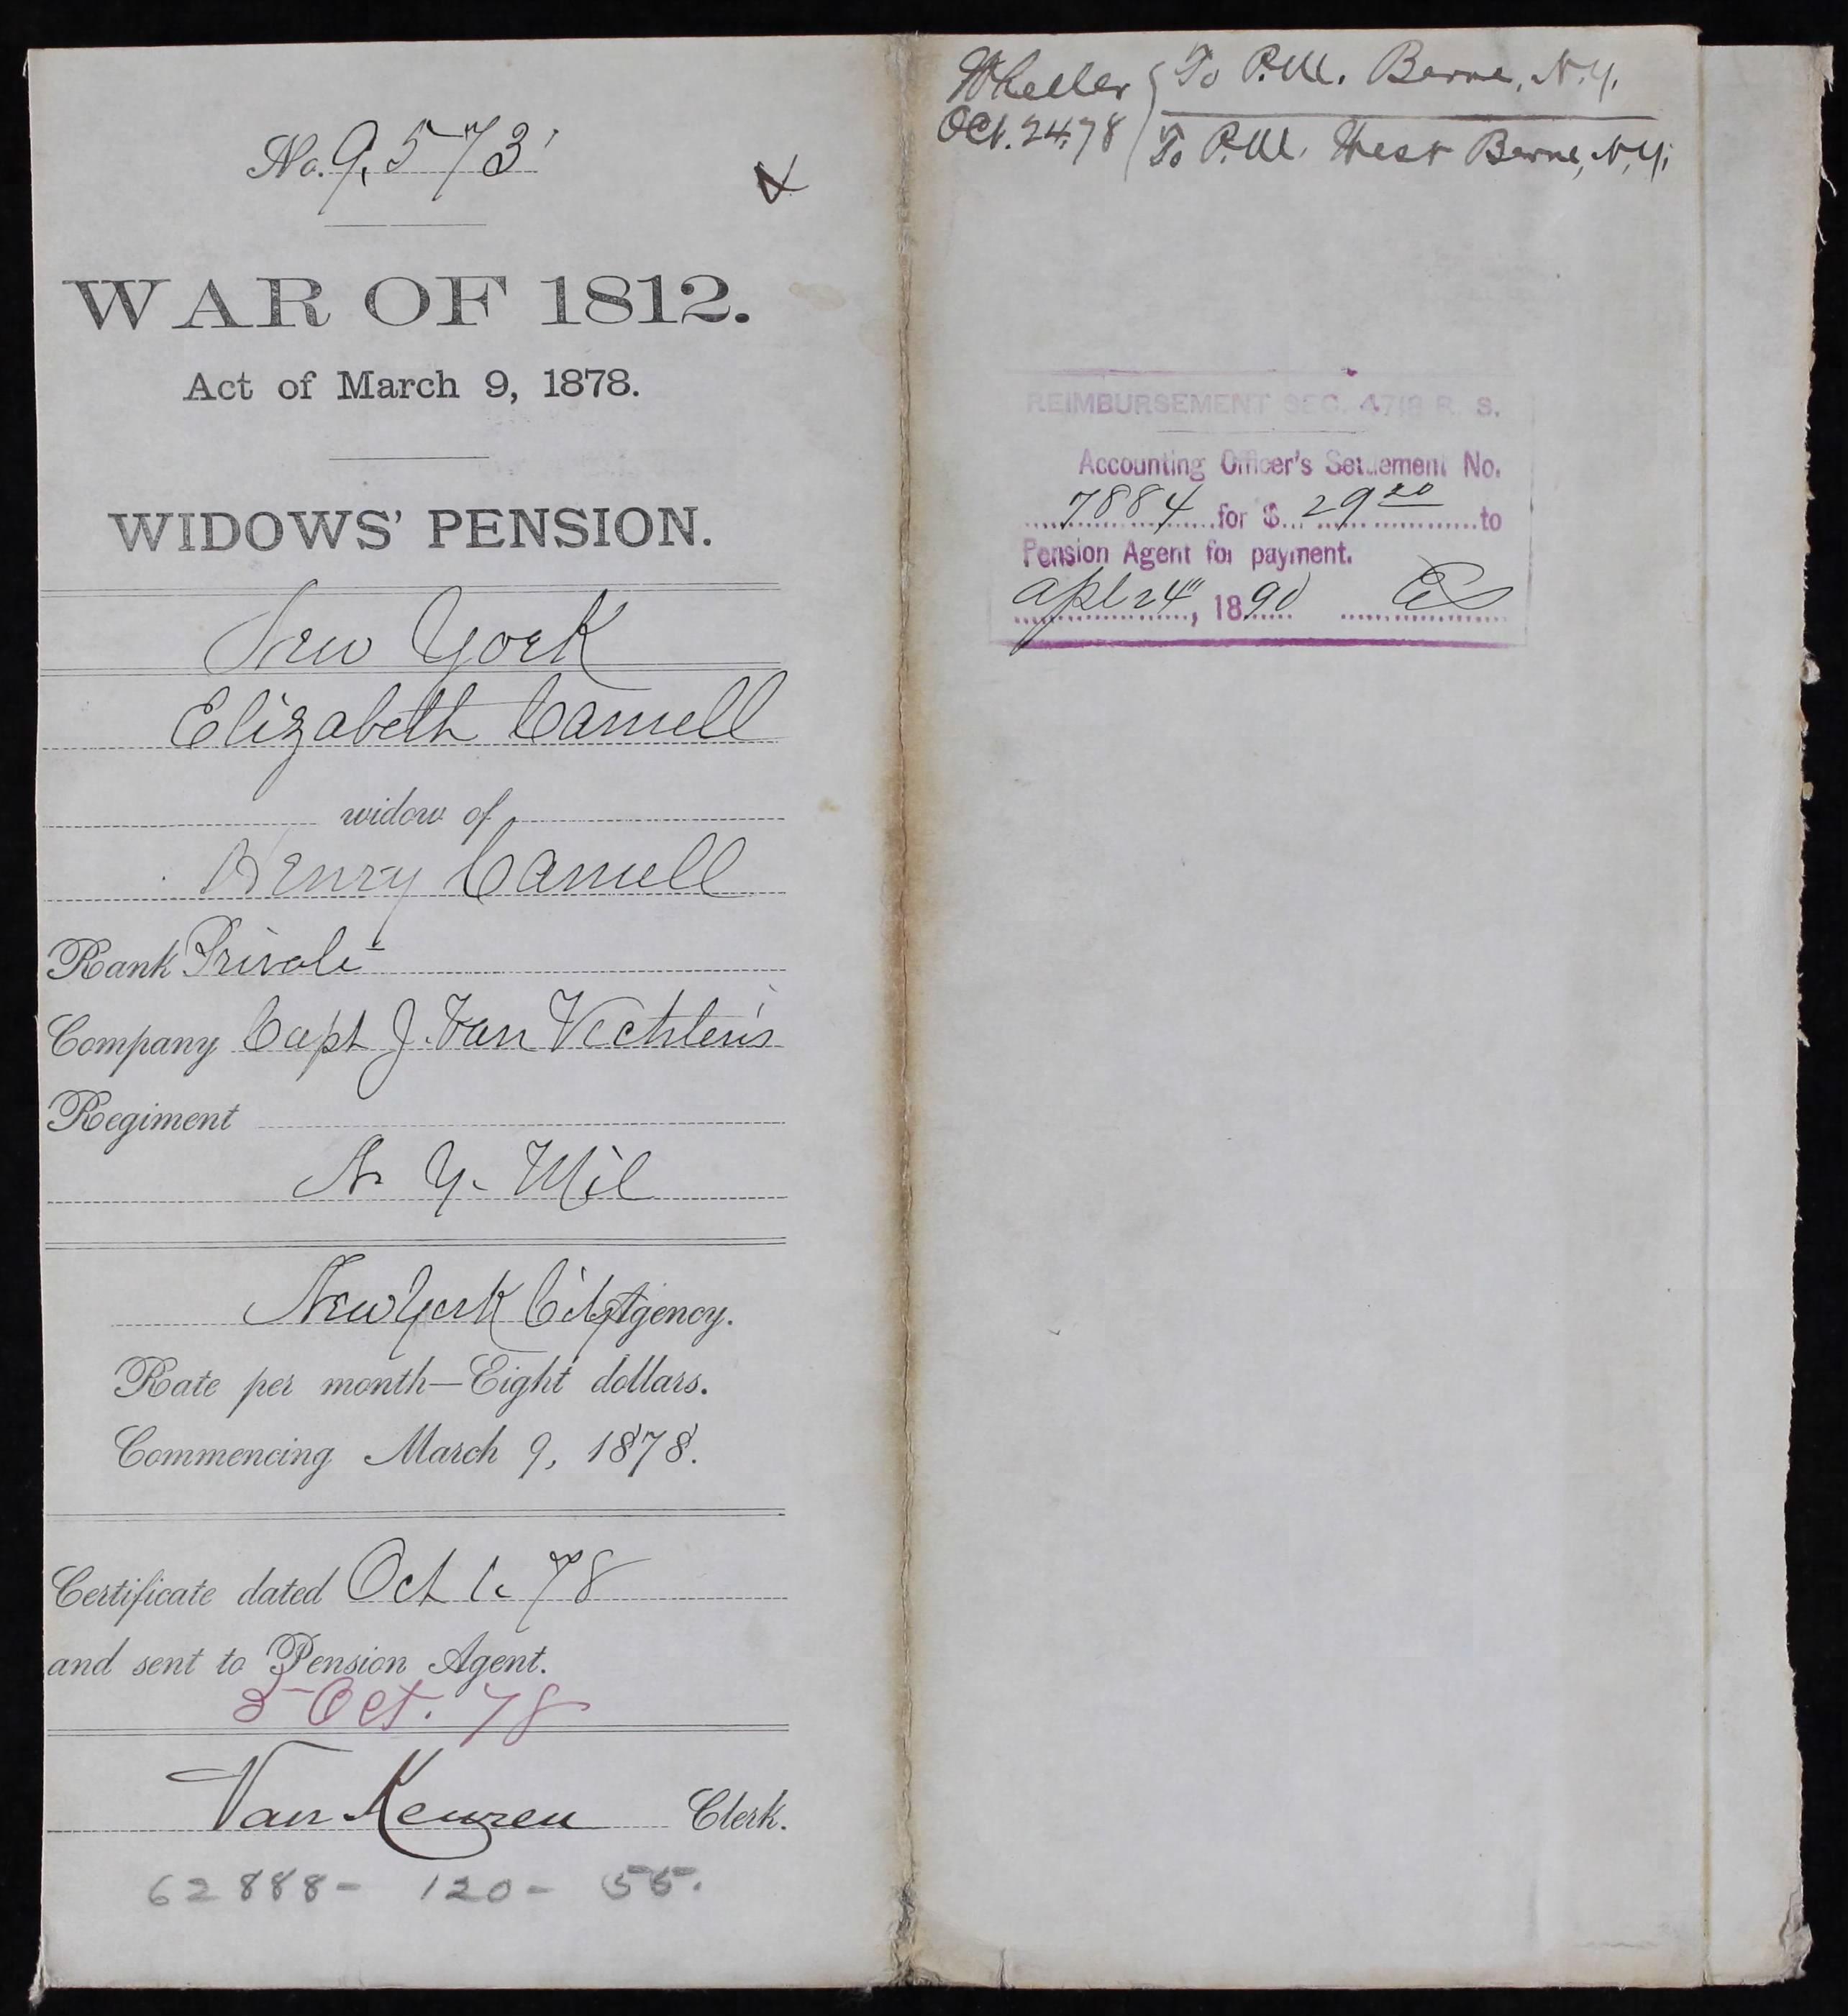 No. 9,573
WAR OF 1812.
Act of March 9, 1878.
WIDOWS' PENSION.
New York
Elizabeth Camell
widow of
Henry Camell
Rank Private
Company Capt J. Van Vechten's
Regiment
N. Y. Mil
New York City Agency.
Rate per month—Eight dollars.
Commencing March 9, 1878.
Certificate dated Oct 1. 78
and sent to Pension Agent.
5 Oct. 78
Van Keuren Clerk.
62888- 120- 55.
Wheeler { To P.M. Berne, N.Y.
Oct. 24, 78 To P.M. West Berne, N.Y.
REIMBURSEMENT SEC. 4718 R. S.
Accounting Officer's Settlement No.
7884 for $ 29 20 to
Pension Agent for payment.
Apl 24", 1890